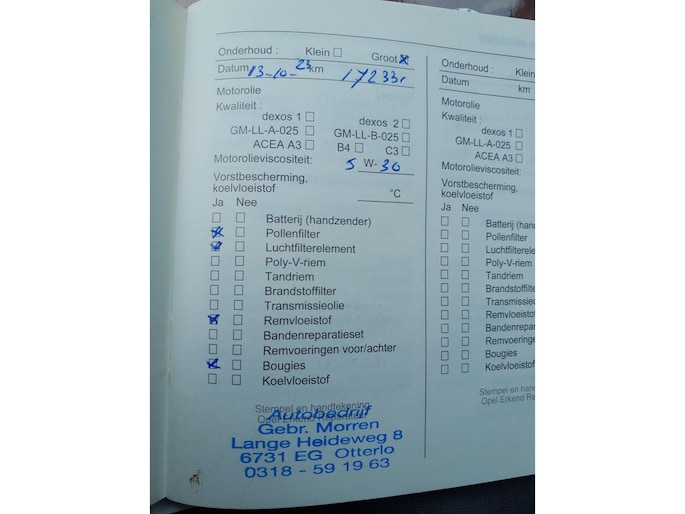 Onderhoud : Klein ☐ Groot ☒
Datum 13-10-23 km 172331
Motorolie
Kwaliteit :
dexos 1 ☐ dexos 2 ☐
GM-LL-A-025 ☐ GM-LL-B-025 ☐
ACEA A3 ☐ B4 ☐ C3 ☐
Motorolieviscositeit: 5 W- 30
Vorstbescherming,
koelvloeistof °C
Ja Nee
☐ ☐ Batterij (handzender)
☒ ☐ Pollenfilter
☒ ☐ Luchtfilterelement
☐ ☐ Poly-V-riem
☐ ☐ Tandriem
☐ ☐ Brandstoffilter
☐ ☐ Transmissieolie
☒ ☐ Remvloeistof
☐ ☐ Bandenreparatieset
☐ ☐ Remvoeringen voor/achter
☒ ☐ Bougies
☐ ☐ Koelvloeistof
Stempel en handtekening
Opel Erkend Reparateur
Autobedrijf
Gebr. Morren
Lange Heideweg 8
6731 EG Otterlo
0318 - 59 19 63
Onderhoud : Klein
Datum km
Motorolie
Kwaliteit :
dexos 1 ☐
GM-LL-A-025 ☐
ACEA A3 ☐
Motorolieviscositeit:
Vorstbescherming,
koelvloeistof
Ja Nee
☐ ☐ Batterij (hand
☐ ☐ Pollenfilter
☐ ☐ Luchtfilterele
☐ ☐ Poly-V-riem
☐ ☐ Tandriem
☐ ☐ Brandstoffilte
☐ ☐ Transmissieol
☐ ☐ Remvloeistof
☐ ☐ Bandenreparat
☐ ☐ Remvoeringen
☐ ☐ Bougies
☐ ☐ Koelvloeistof
Stempel en handt
Opel Erkend Rep